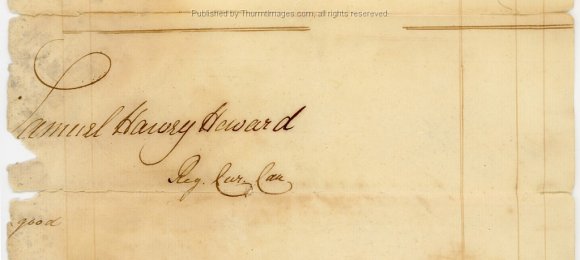 Published by ThurmtImages.com, all rights resereved
Samuel Harvey Howard
Reg. Cur. Can
good